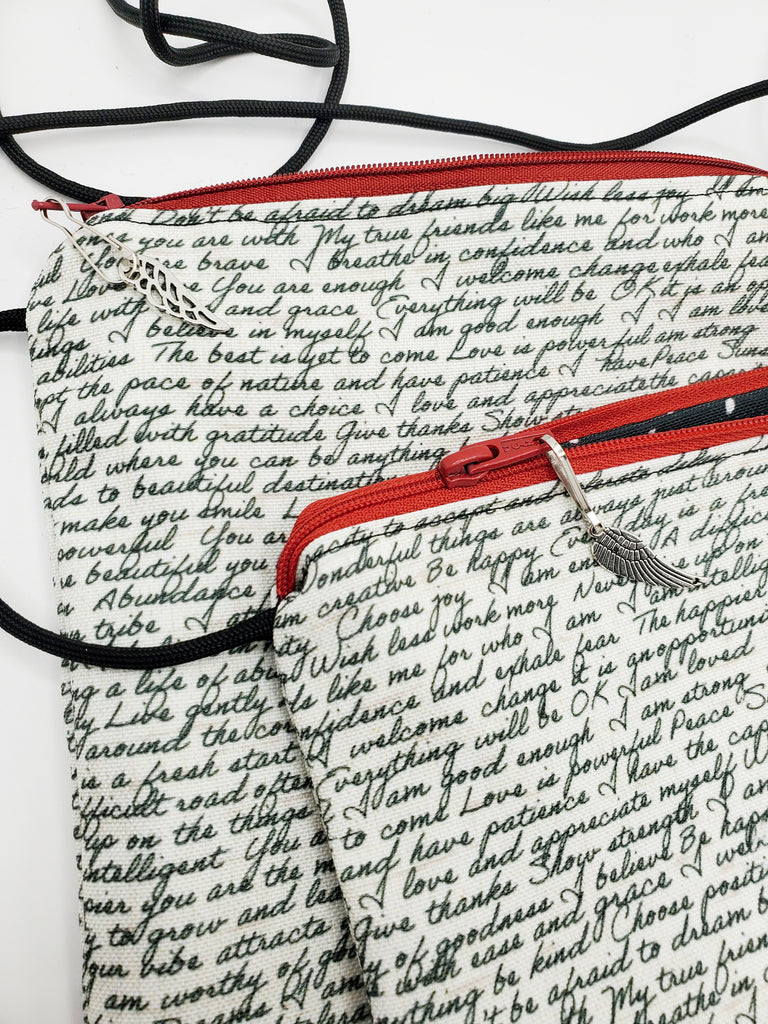 Don't be afraid to dream big Wish less joy I am
you are with My true friends like me for work more
are brave I breathe in confidence and who I am
Love You are enough I welcome change exhale fear
life with and grace Everything will be OK it is an
I believe in myself I am good enough I I am
abilities The best is yet to come Love is powerful am strong
the pace of nature and have patience I have Peace
I always have a choice I love and appreciate the
filled with gratitude Give thanks Show
where you can be anything
to beautiful destinations
make you smile
powerful You are
beautiful you
Abundance
tribe I at
a life of
Live gently
around the
is a fresh start
difficult road often
up on the things
intelligent You
you are the
to grow and
your vibe attracts
am worthy of
I am
to accept and
Wonderful things are always just around
am creative Be happy Every day is a
Choose joy I am A
Wish less work more Never up on
like me for who I am I am
confidence and exhale fear The happier
I welcome change it is an opportunity
Everything will be OK I am loved
I am good enough I am strong
to come Love is powerful Peace
and have patience I have the
I love and appreciate myself
Give thanks Show strength I
of goodness I believe Be
with ease and grace I
anything be kind Choose
be afraid to dream
My true
Breathe in